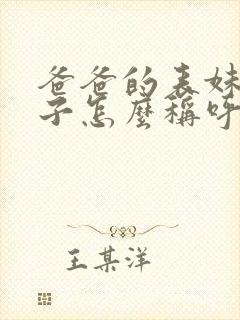 爸爸的表妹
子怎麼稱呼
王某洋